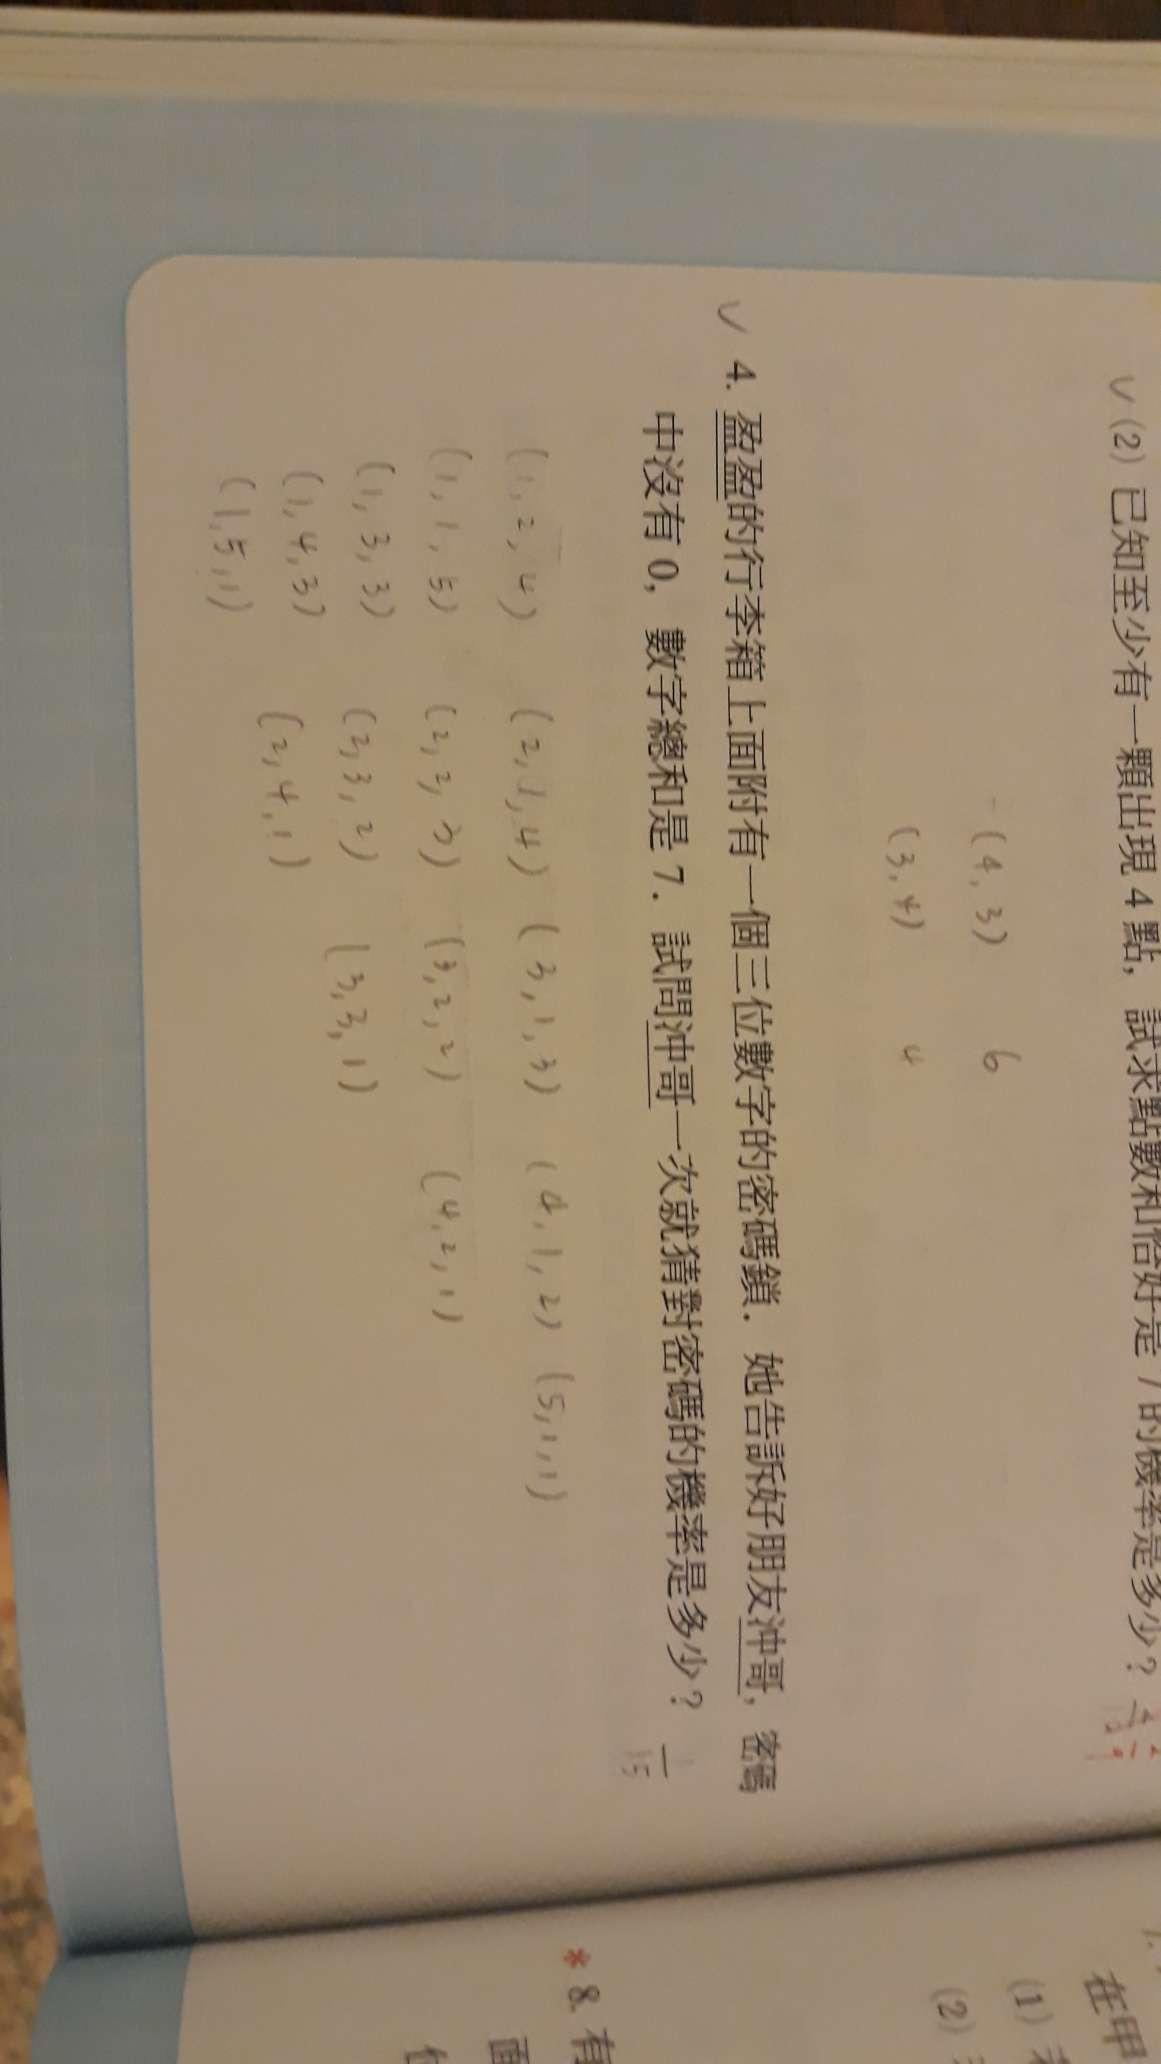 (2) 已知至少有一顆出現 4 點，試求點數和恰好是 7 的機率是多少？
(4,3) 6
(3,4) 4
4. 盈盈的行李箱上面附有一個三位數字的密碼鎖．她告訴好朋友沖哥，密碼
中沒有 0，數字總和是 7．試問沖哥一次就猜對密碼的機率是多少？ 1/15
(1,2,4) (2,1,4) (3,1,3) (4,1,2) (5,1,1)
(1,1,5) (2,2,3) (3,2,2) (4,2,1)
(1,3,3) (2,3,2) (3,3,1)
(1,4,3) (2,4,1)
(1,5,1)
在甲
(1)
(2)
*8. 有
面